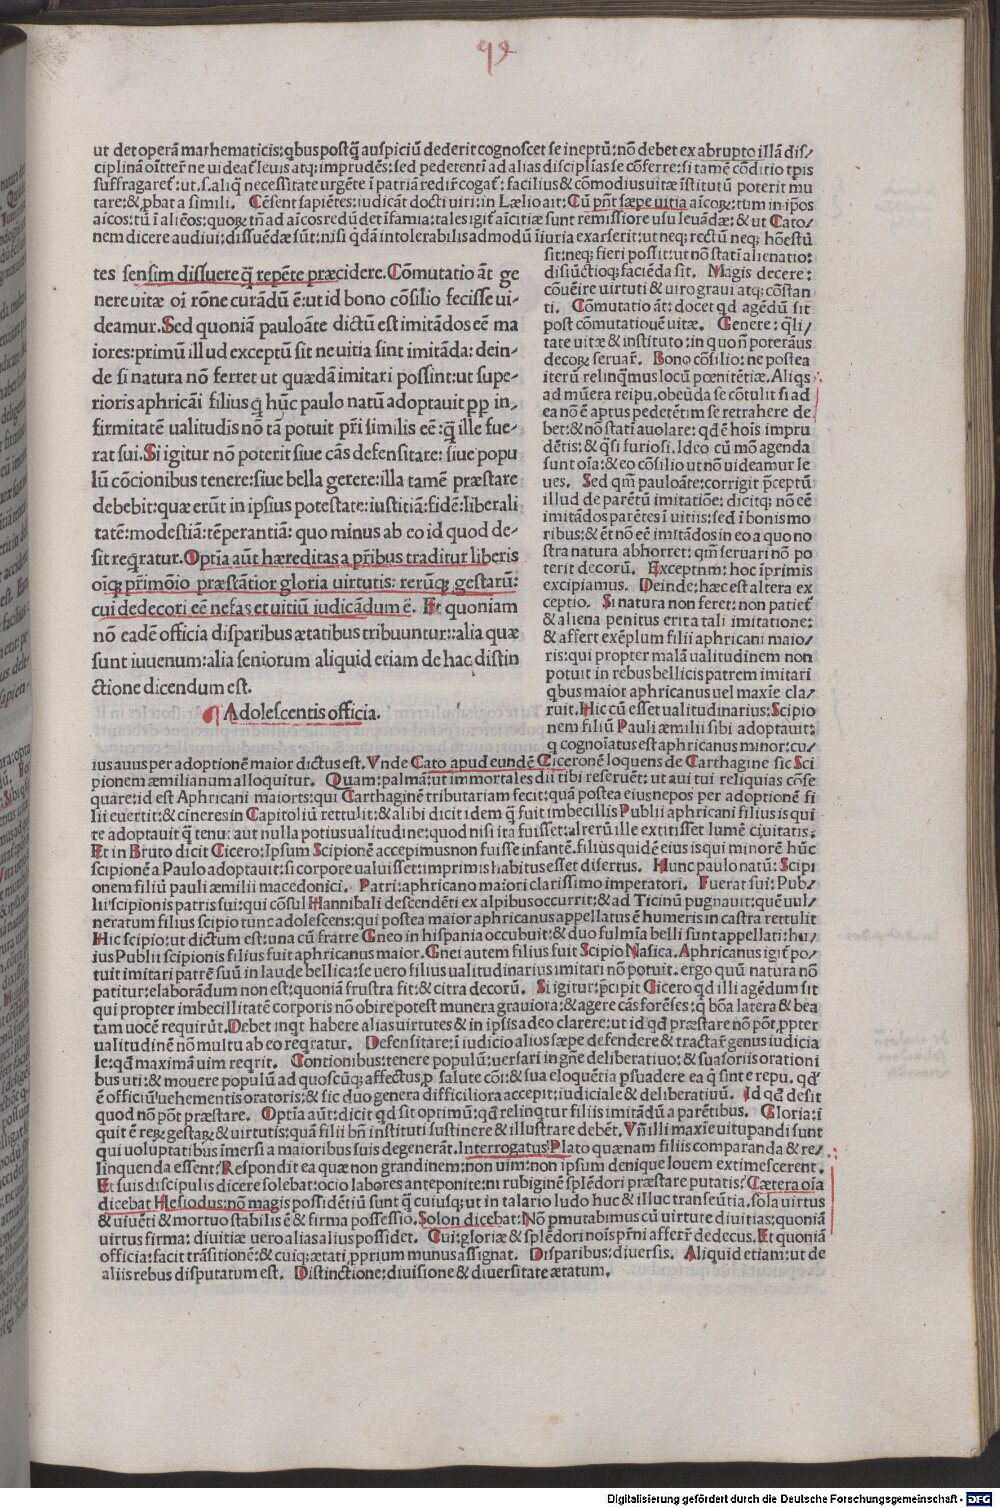 ut det operā mathematicis: qbus postq̄ auspiciū dederit cognoscet se ineptū: nō debet ex abrupto illā dis/
ciplinā oītterꝰ ne uideatꝰ leuis atq; imprudēs: sed pedetenti ad alias disciplīas se cōferre: si tamē cōditio tpis
suffragaretꝰ: ut. s. aliq̄ necessitate urgēte ī patriā redirꝰ cogatꝰ: facilius & cōmodius uitæ īstitutū poterit mu
tare: & pbat a simili. Cēsent sapiētes: iudicāt docti uiri: in Lælio ait: Cū pn̄t sæpe uitia aīcoꝝ: tum in ipos
aīcos: tū ī aliēos: quoꝝ tn̄ ad aīcos redūdet īfamia: tales igitꝰ aīcitiæ sunt remissiore usu leuādæ: & ut Cato/
nem dicere audiui: dissuēdæ sūt: nisi q̄dā intolerabilis admodū īiuria exarserit: ut neq; rectū neq; hōestū
sit: neq; fieri possit: ut nō statī alienatio:
disiūctioq; faciēda sit. Magis decere:
cōuēire uirtuti & uiro graui atq; cōstan
ti. Cōmutatio āt: docet qd agēdū sit
post cōmutatiouē uitæ. Genere: q̄li/
tate uitæ & instituto: in quo n̄ poterāus
decoꝝ seruarꝰ. Bono cōsilio: ne postea
iterū relinq̄mus locū pœnitētiæ. Aliqs
ad mūera reipu. obeūda se cōtulit si ad
ea nō ē aptus pedetētim se retrahere de
bet: & nō statī auolare: qd ē hoīs impru
dētis: & q̄si furiosi. Ideo cū mō agenda
sunt oīa: & eo cōsilio ut nō uideamur le
ues. Sed qm̄ pauloāte: corrigit p̄ceptū
illud de parētū imitatiōe: dicitq; nō eē
imitādos parētes ī uitiis: sed ī bonis mo
ribus: & ēt nō eē imitādos in eo a quo no
stra natura abhorret: qm̄ seruari nō po
terit decorū. Exceptnm: hoc īprimis
excipiamus. Deinde: hæc est altera ex
ceptio. Si natura non feret: non patietꝰ
& aliena penitus erit a tali imitatione:
& affert exēplum filii aphricani maio/
ris: qui propter malā ualitudinem non
potuit in rebus bellicis patrem imitari
qbus maior aphricanus uel maxie cla/
ruit. Hic cū esset ualitudinarius: Scipio
nem filiū Pauli æmilii sibi adoptauit:
q cognoīatus est aphricanus minor: cu/
tes sensim dissuere q̄ repēte præcidere. Cōmutatio āt ge
nere uitæ oī rōne curādū ē: ut id bono cōsilio fecisse ui-
deamur. Sed quoniā pauloāte dictū est imitādos eē ma
iores: primū illud exceptū sit ne uitia sint imitāda: dein-
de si natura nō ferret ut quædā imitari possint: ut supe-
rioris aphricāi filius q̄ hūc paulo natū adoptauit pp in,
firmitatē ualitudis nō tā potuit prī similis eē: q̄ ille fue-
rat sui. Si igitur nō poterit siue cās defensitare: siue popu
lū cōcionibus tenere: siue bella gerere: illa tamē præstare
debebit: quæ erūt in ipsius potestate: iustitiā: fidē: liberali
tatē: modestiā: tēperantiā: quo minus ab eo id quod de-
sit reqratur. Optīa aūt hæreditas a pribus traditur liberis
oīq; prīmōio præstātior gloria uirtutis: rerūq; gestarū:
cui dedecori eē nefas et uitiū iudicādum ē. Et quoniam
nō eadē officia disparibus ætatibus tribuuntur:: alia quæ
sunt iuuenum: alia seniorum aliquid etiam de hac distin
ctione dicendum est.
Adolescentis officia.
ius auus per adoptionē maior dictus est. Vnde Cato apud eundē Ciceronē loquens de Carthagine sic Sci
pionem æmilianum alloquitur. Quam: palmā: ut immortales dii tibi reseruēt: ut aui tui reliquias cōse
quare: id est Aphricani maiorts: qui Carthaginē tributariam fecit: quā postea eius nepos per adoptionē fi
lii euertit: & cineres in Capitoliū rettulit: & alibi dicit idem q̄ fuit imbecillis Publii aphricani filius is qui
te adoptauit q̄ tenu: aut nulla potius ualitudine: quod nisi ita fuisset: al rerū ille extitisset lumē ciuitatis:
Et in Bruto dicit Cicero: Ipsum Scipionē accepimus non fuisse infantē. filius quidē eius is qui minorē hūc
scipionē a Paulo adoptauit: si corpore ualuisset: imprimis habitus esset disertus. Hunc paulo natū: Scipi
onem filiū pauli æmilii macedonici. Patri: aphricano maiori clarissimo imperatori. Fuerat sui: Pub/
lii scipionis patris sui: qui cōsul Hannibali descendēti ex alpibus occurrit: & ad Ticinū pugnauit: quē uul/
neratum filius scipio tunc adolescens: qui postea maior aphricanus appellatus ē humeris in castra rettulit
Hic scipio: ut dictum est: una cū fratre Gneo in hispania occubuit: & duo fulmīa belli sunt appellati: hu/
ius Publii scipionis filius fuit aphricanus maior. Gnei autem filius fuit Scipio Nasica. Aphricanus igitꝰ po/
tuit imitari patrē suū in laude bellica: se uero filius ualitudinarius imitari nō potuit. ergo quū natura nō
patitur: elaborādum non est: quoniā frustra fit: & citra decorū. Si igitur: p̄cipit Cicero qd illi agēdum sit
qui propter imbecillitatē corporis nō obire potest munera grauiora: & agere cās forēses: q̄ bōa latera & bea
tam uocē requirūt. Debet inqt habere alias uirtutes & in ipsis adeo clarere: ut id qd præstare nō pōt ppter
ualitudinē nō multu ab eo reqratur. Defensitare: ī iudicio alios sæpe defendere & tractarꝰ genus iudicia
le: qd maximā uim reqrit. Contionibus: tenere populū: uersari in gn̄e deliberatiuo: & suasoriis orationi
bus uti: & mouere populū ad quoscūq; affectus p salute cōi: & sua eloquētia psuadere ea q̄ sint e repu. qd
ē officiū uehementis oratoris: & sic duo genera difficiliora accepit: iudiciale & deliberatiuū. Id qd desit
quod nō pōt præstare. Optīa aūt: dicit qd sit optimū: qd relinqtur filiis imitādū a parētibus. Gloria: i
quit ē reꝝ gestaꝝ & uirtutis: quā filii bn̄ instituti sustinere & illustrare debēt. Vn̄ illi maxie uitupandi sunt
qui uoluptatibus īmersi a maioribus suis degenerāt. Interrogatus Plato quænam filiis comparanda & re/
linquenda essent? Respondit ea quæ non grandinem: non uim: non ipsum denique Iouem extimescerent.
Et suis discipulis dicere solebat: ocio labores anteponite: ni rubiginē splēdori præstare putatis? Cætera oīa
dicebat Hesiodus: nō magis possidētiū sunt q̄ cuiusq; ut in talario ludo huc & illuc transeūtia. sola uirtus
& uiuēti & mortuo stabilis ē & firma possessio. Solon dicebat: Nō pmutabimus cū uirtute diuitias: quoniā
uirtus firma: diuitiæ uero alias alius possidet. Cui: gloriæ & splēdori noīs prn̄i afferrꝰ dedecus. Et quoniā
officia: facit trāsitionē: & cuiq; ætati pprium munus assignat. Disparibus: diuersis. Aliquid etiam: ut de
aliis rebus disputatum est. Distinctione: diuisione & diuersitate ætatum.
Digitalisierung gefördert durch die Deutsche Forschungsgemeinschaft - DFG